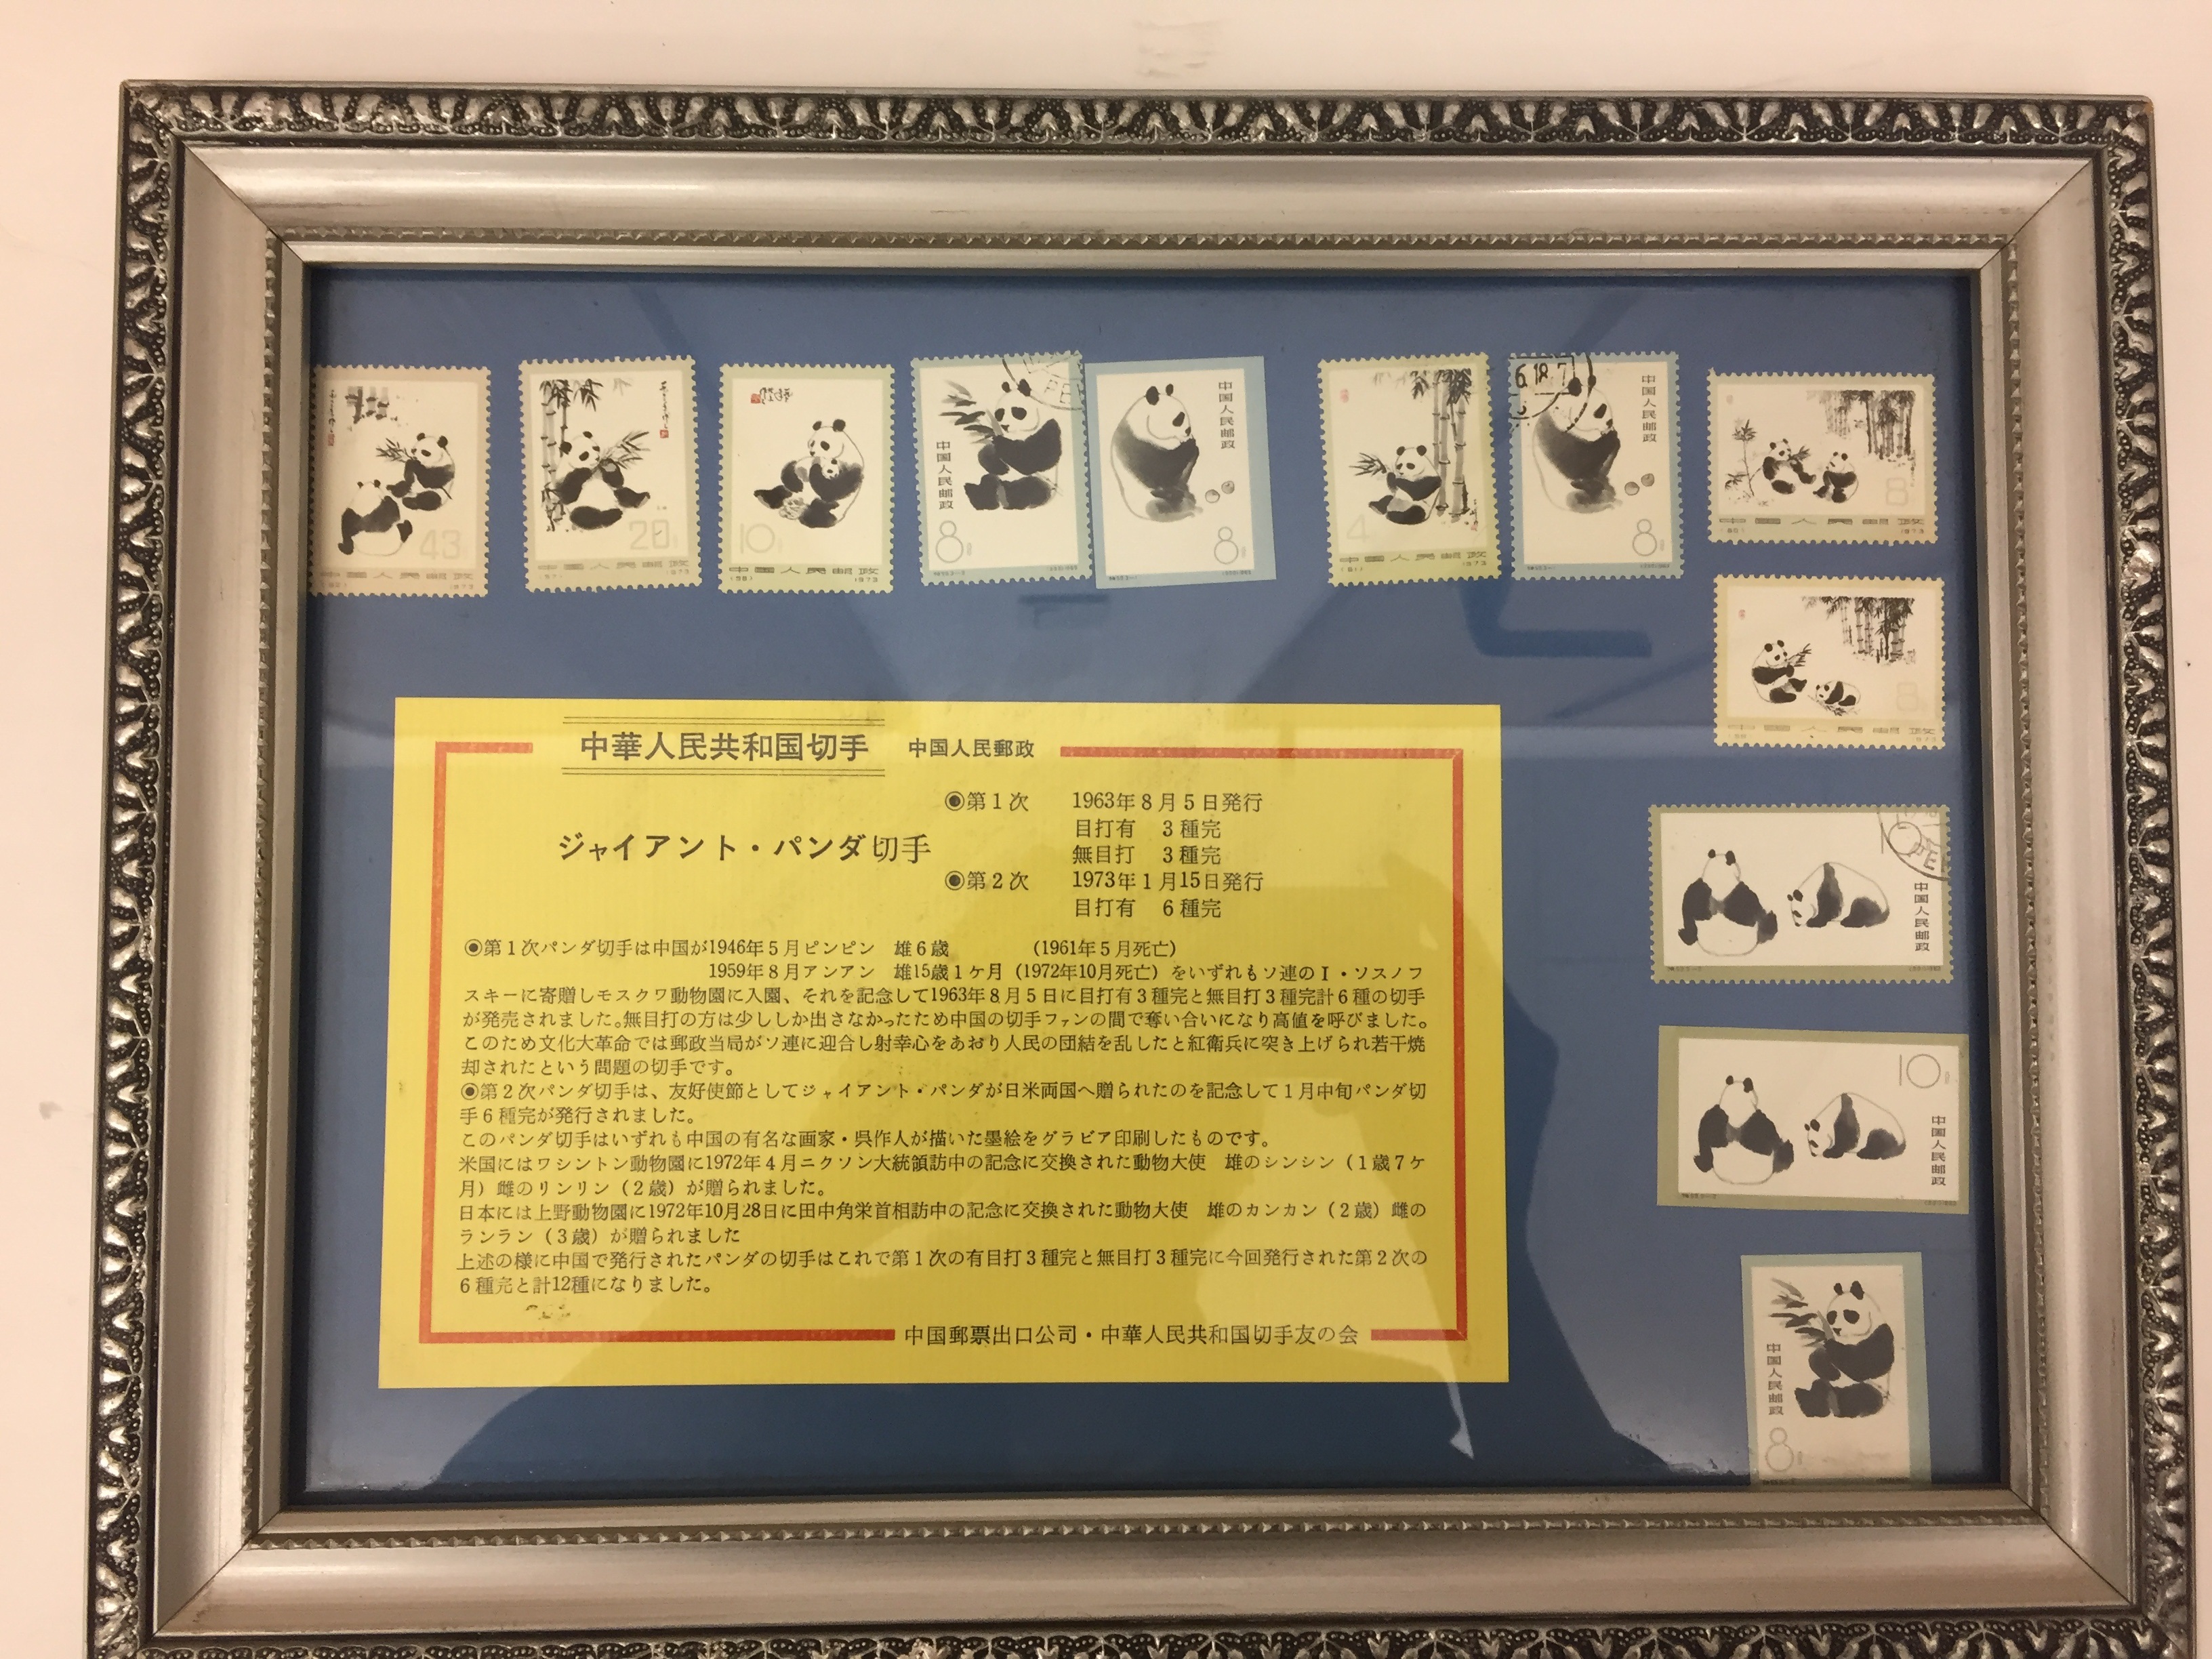 43
20
10
中国人民邮政
1973
中国人民邮政
8
中国人民邮政
8
中国人民邮政
1973
6.18.7
中国人民邮政
8
8
中国人民邮政
1973
8
中国人民邮政
中国人民邮政
10
中国人民邮政
中国人民邮政
8
中華人民共和国切手 中国人民郵政
◉第1次 1963年8月5日発行
目打有 3種完
ジャイアント・パンダ切手
無目打 3種完
◉第2次 1973年1月15日発行
目打有 6種完
◉第1次パンダ切手は中国が1946年5月ピンピン 雄6歳 (1961年5月死亡)
1959年8月アンアン 雄15歳1ケ月(1972年10月死亡)をいずれもソ連のI・ソスノフ
スキーに寄贈しモスクワ動物園に入園、それを記念して1963年8月5日に目打有3種完と無目打3種完計6種の切手
が発売されました。無目打の方は少ししか出さなかったため中国の切手ファンの間で奪い合いになり高値を呼びました。
このため文化大革命では郵政当局がソ連に迎合し射幸心をあおり人民の団結を乱したと紅衛兵に突き上げられ若干焼
却されたという問題の切手です。
◉第2次パンダ切手は、友好使節としてジャイアント・パンダが日米両国へ贈られたのを記念して1月中旬パンダ切
手6種完が発行されました。
このパンダ切手はいずれも中国の有名な画家・呉作人が描いた墨絵をグラビア印刷したものです。
米国にはワシントン動物園に1972年4月ニクソン大統領訪中の記念に交換された動物大使 雄のシンシン(1歳7ケ
月)雌のリンリン(2歳)が贈られました。
日本には上野動物園に1972年10月28日に田中角栄首相訪中の記念に交換された動物大使 雄のカンカン(2歳)雌の
ランラン(3歳)が贈られました
上述の様に中国で発行されたパンダの切手はこれで第1次の有目打3種完と無目打3種完に今回発行された第2次の
6種完と計12種になりました。
中国郵票出口公司・中華人民共和国切手友の会